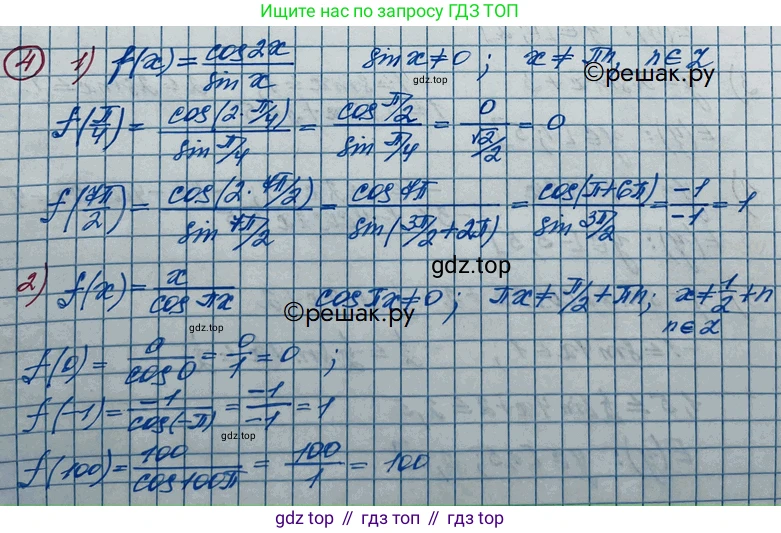 Ищите нас по запросу ГДЗ ТОП
4 1) f(x) = cos2x / sin x sin x ≠ 0 ; x ≠ πn, n ∈ Z
©решак.ру
f(π/4) = cos(2·π/4) / sin π/4 = cos π/2 / sin π/4 = 0 / √2/2 = 0
f(7π/2) = cos(2·7π/2) / sin 7π/2 = cos 7π / sin(3π/2+2π) = cos(π+6π) / sin 3π/2 = -1/-1 = 1
gdz.top
2) f(x) = x / cos πx cos πx ≠ 0 ; πx ≠ π/2 + πn ; x ≠ 1/2 + n
n ∈ Z
©решак.ру
gdz.top
f(0) = 0 / cos 0 = 0/1 = 0 ;
f(-1) = -1 / cos(-π) = -1/-1 = 1
gdz.top
f(100) = 100 / cos 100π = 100/1 = 100
gdz top // гдз топ // gdz.top